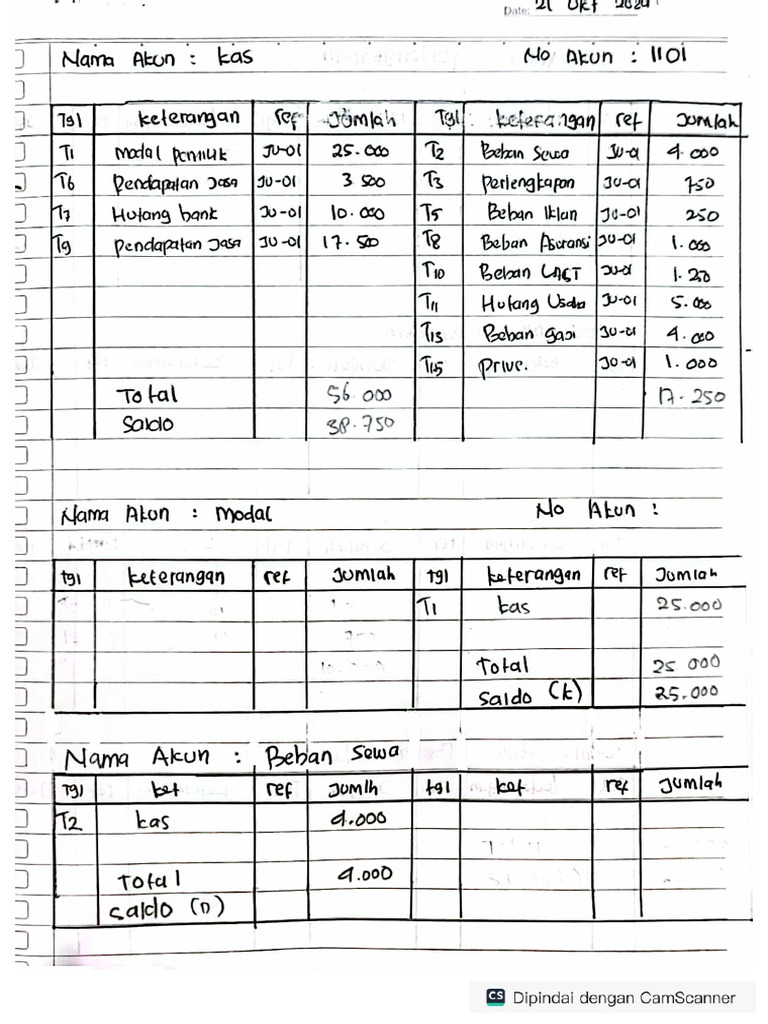 Date: 21 Okt 2024
Nama Akun : kas No Akun : 1101
Tgl keterangan ref Jumlah Tgl keterangan ref Jumlah
T1 modal pemilik JU-01 25.000 T2 Beban Sewa JU-01 4.000
T6 Pendapatan Jasa JU-01 3 500 T3 Perlengkapan JU-01 750
T7 Hutang bank JU-01 10.000 T5 Beban Iklan JU-01 250
T9 pendapatan Jasa JU-01 17.500 T8 Beban Asuransi JU-01 1.000
T10 Beban JU-01 1.250
T11 Hutang Usaha JU-01 5.000
T13 Beban gaji JU-01 4.000
T15 Prive. JU-01 1.000
Total 56.000 17.250
Saldo 38.750
Nama Akun : Modal No Akun :
tgl keterangan ref Jumlah tgl keterangan ref Jumlah
T1 kas 25.000
Total 25 000
Saldo (k) 25.000
Nama Akun : Beban Sewa
Tgl ket ref Jumlh tgl ket ref Jumlah
T2 kas 4.000
Total 4.000
Saldo (D)
CS Dipindai dengan CamScanner